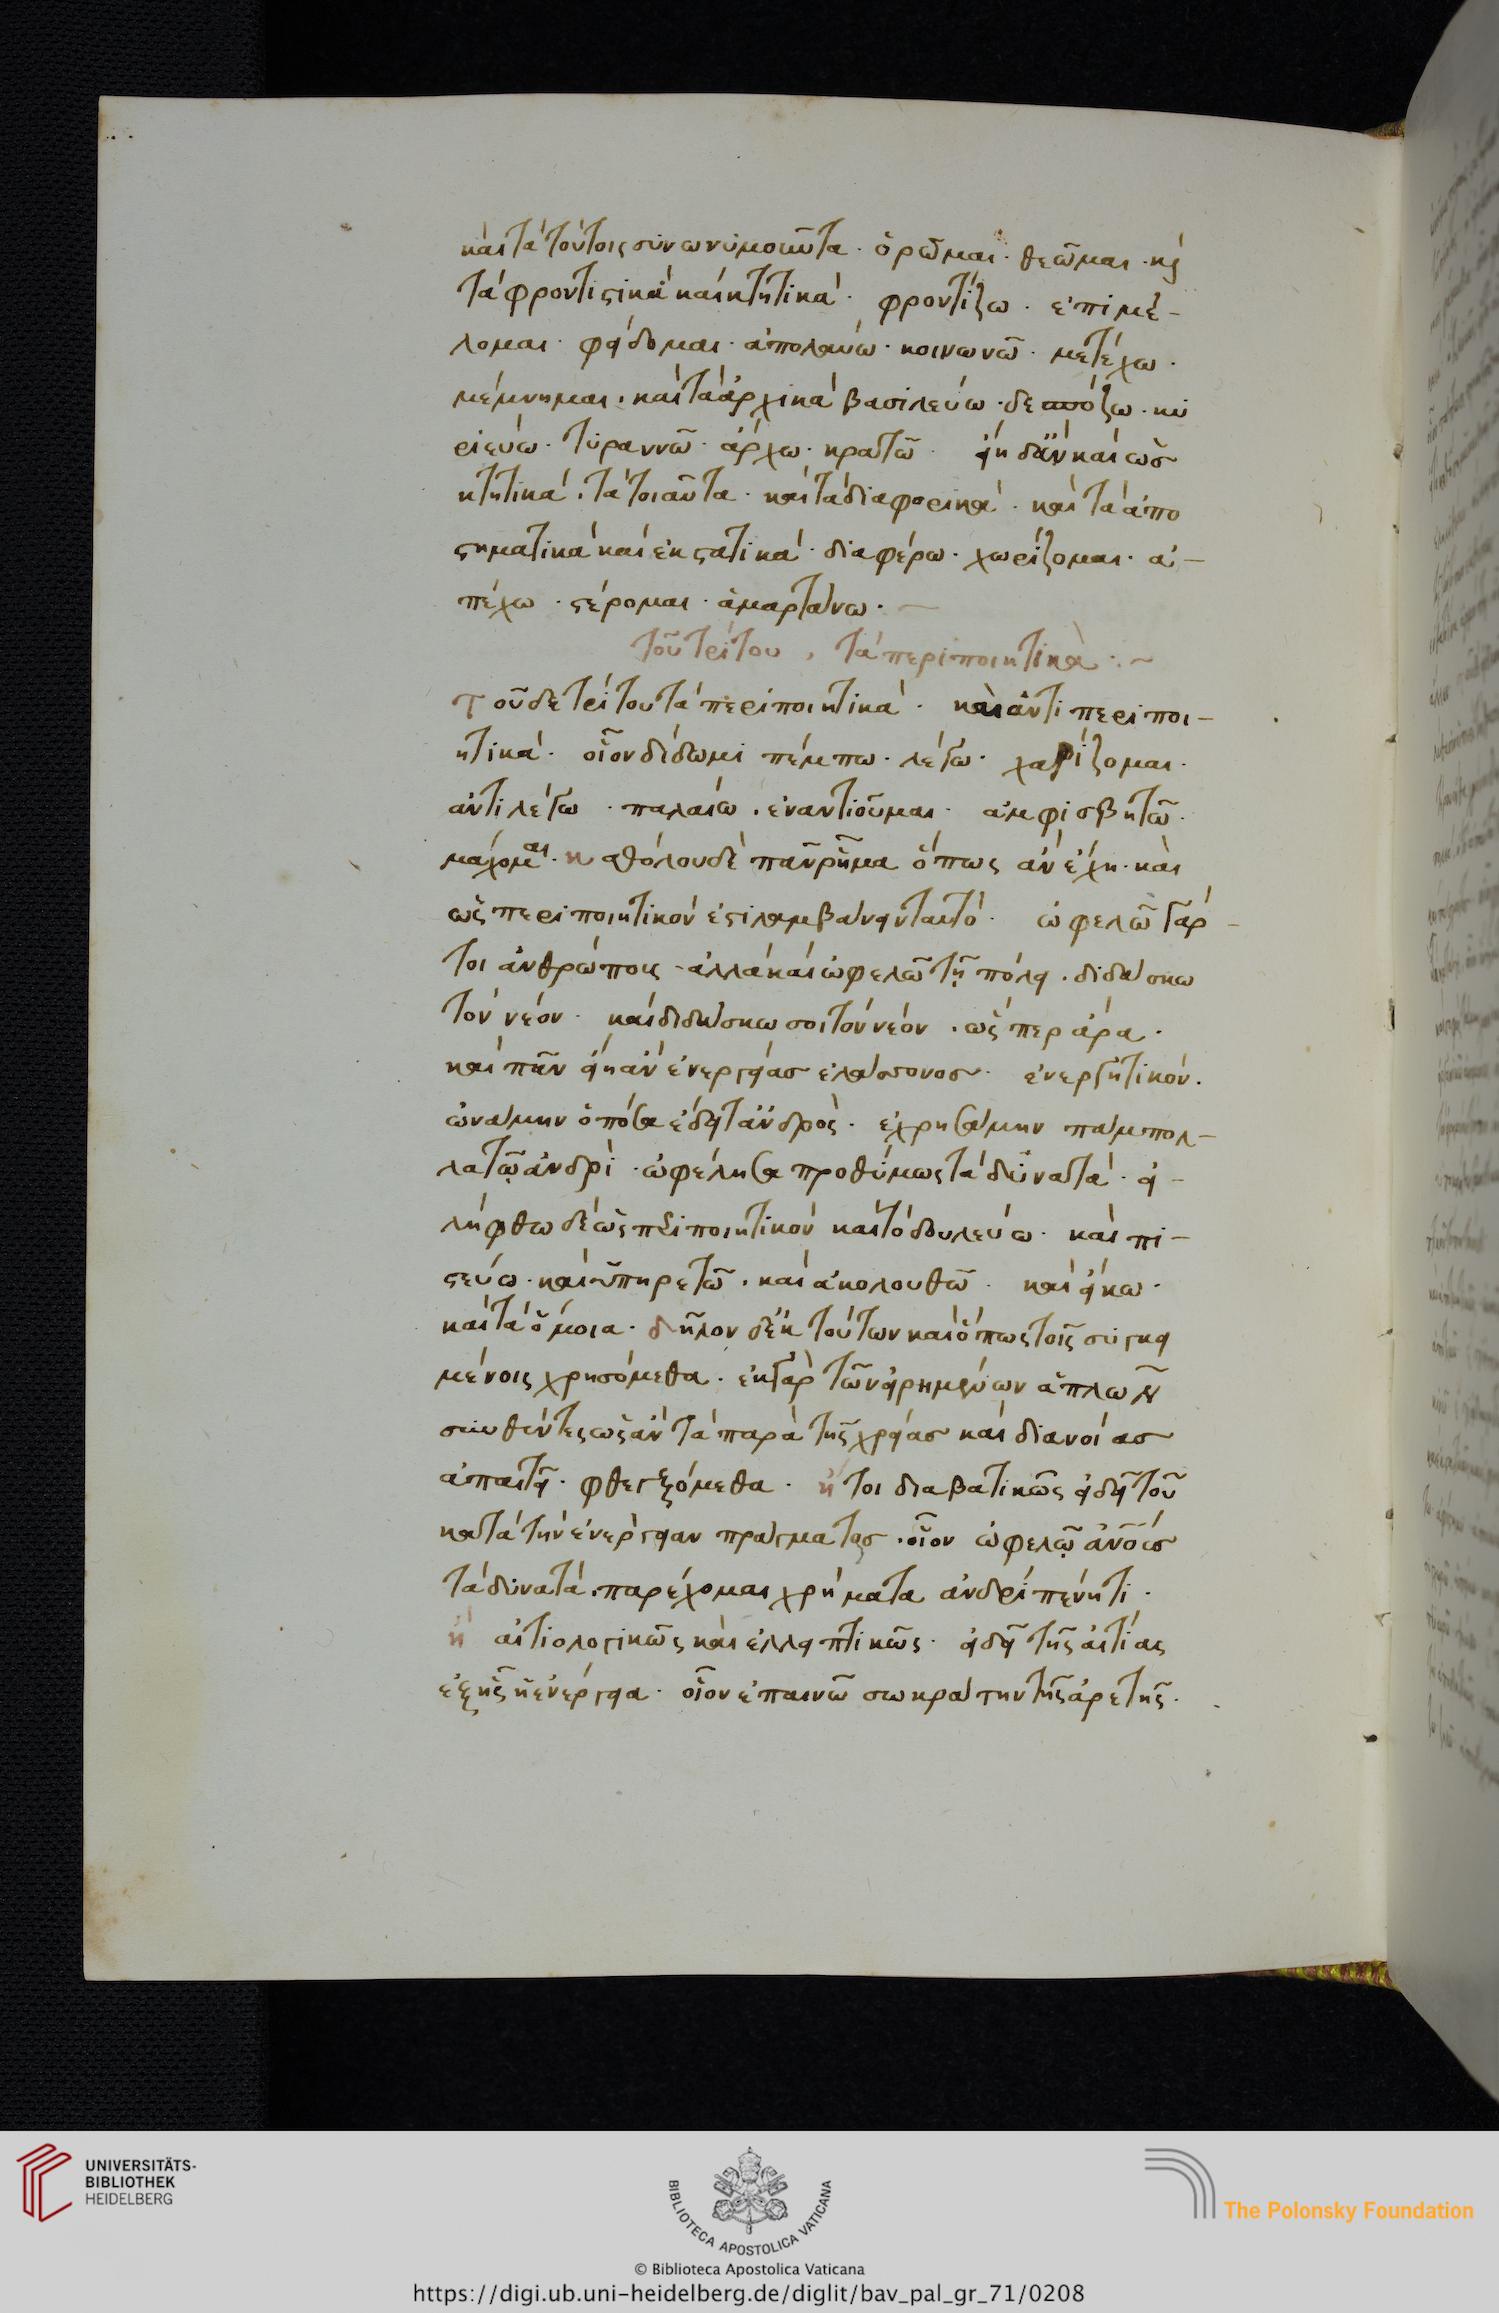 καὶ τὰ τούτοις συνωνυμοῦντα· ὁρῶμαι· θεῶμαι· κ
τὰ φροντιστικὰ καὶ κτητικά· φροντίζω· ἐπιμέ-
λομαι· φείδομαι· ἀπολαύω· κοινωνῶ· μετέχω·
μέμνημαι· καὶ τὰ ἀρχικὰ βασιλεύω· δεσπόζω· κυ
ριεύω· τυραννῶ· ἄρχω· κρατῶ· εἴη δ' ἂν καὶ ὡς
κτητικά· τὰ τοιαῦτα· καὶ τὰ διαφορικά· καὶ τὰ ἀπο
στηματικὰ καὶ ἐκστατικά· διαφέρω· χωρίζομαι· ἀ-
πέχω· στέρομαι· ἁμαρτάνω·
τοῦ τρίτου, τὰ περιποιητικὰ:~
Τοῦ δὲ τρίτου τὰ περιποιητικά· καὶ ἀντιπεριποι-
ητικά· οἷον δίδωμι πέμπω· λέγω· χαρίζομαι·
ἀντιλέγω· παλαίω· ἐναντιοῦμαι· ἀμφισβητῶ·
μάχομαι· καθόλου δὲ πᾶν ῥῆμα ὅπως ἂν ἔχη· καὶ
ὡς περιποιητικὸν ἔστι λαμβάνειν ταυτό· ὠφελῶ γάρ-
τοι ἀνθρώποις· ἀλλὰ καὶ ὠφελῶ τῇ πόλει· διδάσκω
τὸν νέον· καὶ διδάσκω σοι τὸν νέον· ὥσπερ ἄρα·
καὶ πᾶν εἴη ἂν ἐνεργείας ἐλάττονος· ἐνεργητικόν·
ὠνάμην ὁπόσα ἔδει τἀνδρὸς· ἐχρησάμην πάμπολ-
λα τῷ ἀνδρὶ· ὠφέλησα προθύμως τὰ δυνατά· εἰ-
λήφθω δὲ ὡς περιποιητικὸν καὶ τὸ δουλεύω· καὶ πι-
στεύω· καὶ ὑπηρετῶ· καὶ ἀκολουθῶ· καὶ εἴκω·
καὶ τὰ ὅμοια· δῆλον δ' ἐκ τούτων καὶ ὅπως τοῖς συγκει
μένοις χρησόμεθα· ἐκ γὰρ τῶν εἰρημένων ἁπλῶν
συνθέντες ὡς ἂν τὰ παρὰ τῆς χρείας καὶ διανοίας
ἀπαιτῇ· φθεγξόμεθα· ἤτοι διαβατικῶς εἴδει τοῦ
κατὰ τὴν ἐνέργειαν πράγματος· οἷον ὠφελῶ ἀνοις
τὰ δυνατά· παρέχομαι χρήματα ἀνδρὶ πένητι·
ἢ αἰτιολογικῶς καὶ ἐλλειπτικῶς· εἴδει τῆς αἰτίας
ἐξ ἧς ἡ ἐνέργεια· οἷον ἐπαινῶ σωκράτην τῆς ἀρετῆς·
UNIVERSITÄTS-
BIBLIOTHEK
HEIDELBERG
BIBLIOTECA APOSTOLICA VATICANA
The Polonsky Foundation
© Biblioteca Apostolica Vaticana
https://digi.ub.uni-heidelberg.de/diglit/bav_pal_gr_71/0208